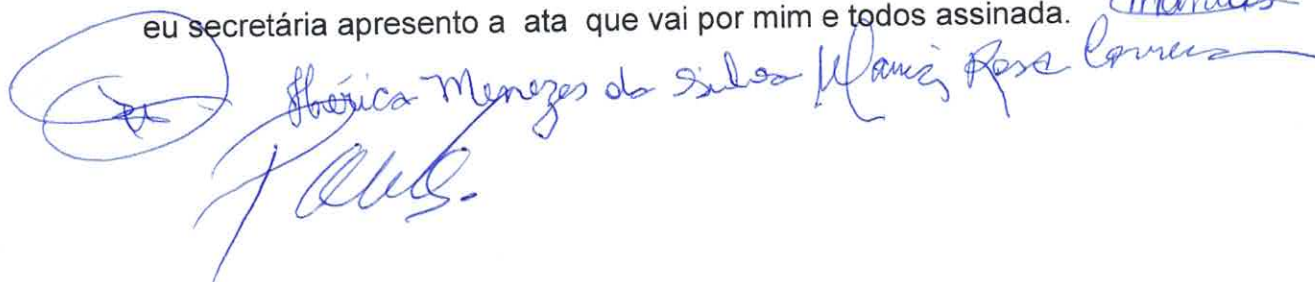 eu secretária apresento a ata que vai por mim e todos assinada.
Menezes da Silva Maria Rosa Correia